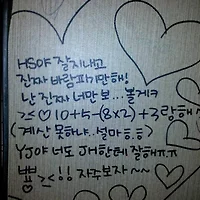 HS야 잘지내고
진짜 바람피기만해!
난 진짜 너만 보...볼게ㅋ
≥≤♡ 10+5-(8x2)+3랑해^
(계산 못하냐..설마ㅎ.ㅎ)
YJ야 너도 JH한테 잘해ㅠㅠ
뽀♡≥≤!! 자주보자~~